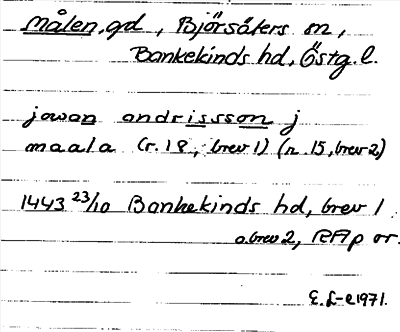 Målen, gd, Björsäters sn,
Bankekinds hd, Östg. l.
jowan andrissson j
maala (r. 18, brev 1) (r. 15, brev 2)
1443 23/10 Bankekinds hd, brev 1
o. brev 2, RAp or.
E. L-e 1971.